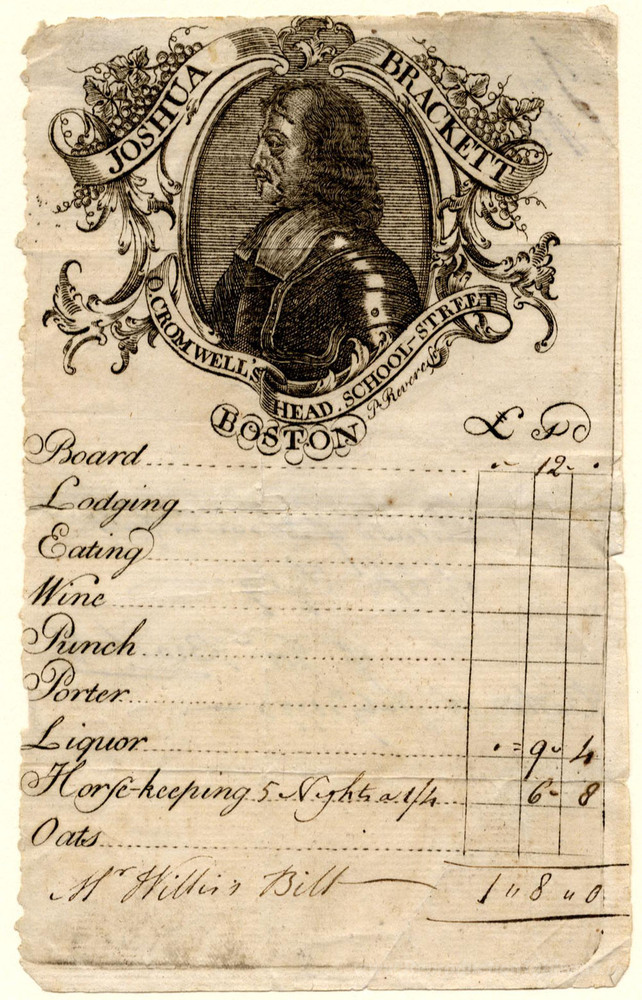 JOSHUA BRACKETT
O. CROMWELL'S HEAD. SCHOOL-STREET
BOSTON
P. Revere Sc
£ S D
Board 〃 12 〃 〃
Lodging
Eating
Wine
Punch
Porter
Liquor 〃 = 9 〃 4
Horse-keeping 5 Nights a 1/4 6 〃 8
Oats
Mr Willis's Bill 1 〃 8 〃 0